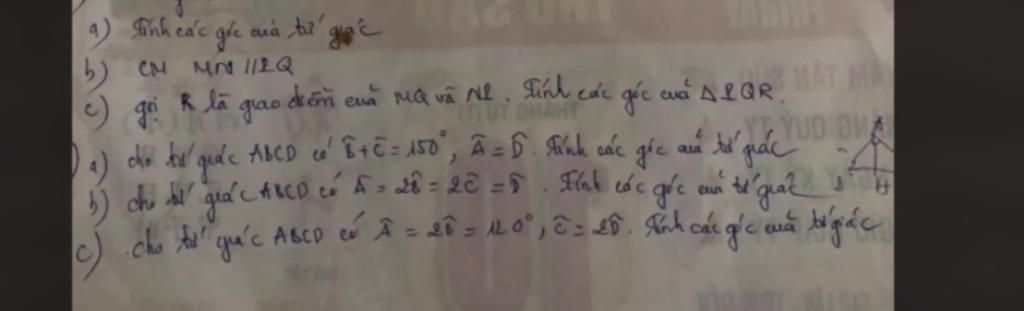 a) Tính các góc của tứ giác
b) CM MN // IQ
c) gọi R là giao điểm của MQ và NI. Tính các góc của Δ IQR.
a) cho tứ giác ABCD có B̂ + Ĉ = 150°, Â = D̂. Tính các góc của tứ giác
b) cho tứ giác ABCD có Â = 2B̂ = 2Ĉ = D̂. Tính các góc của tứ giác
c) cho tứ giác ABCD có Â = 2B̂ = 120°, Ĉ = 2D̂. Tính các góc của tứ giác